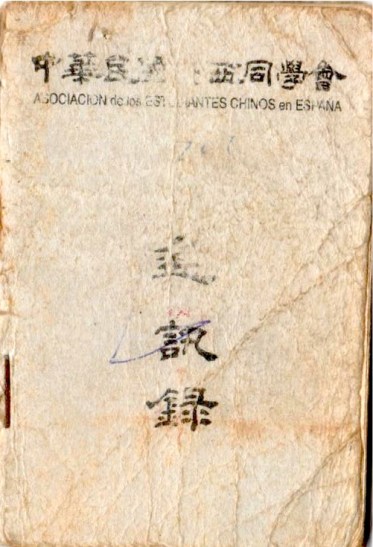 中華民國西同學會
ASOCIACION de los ESTUDIANTES CHINOS en ESPAÑA
通
訊
錄